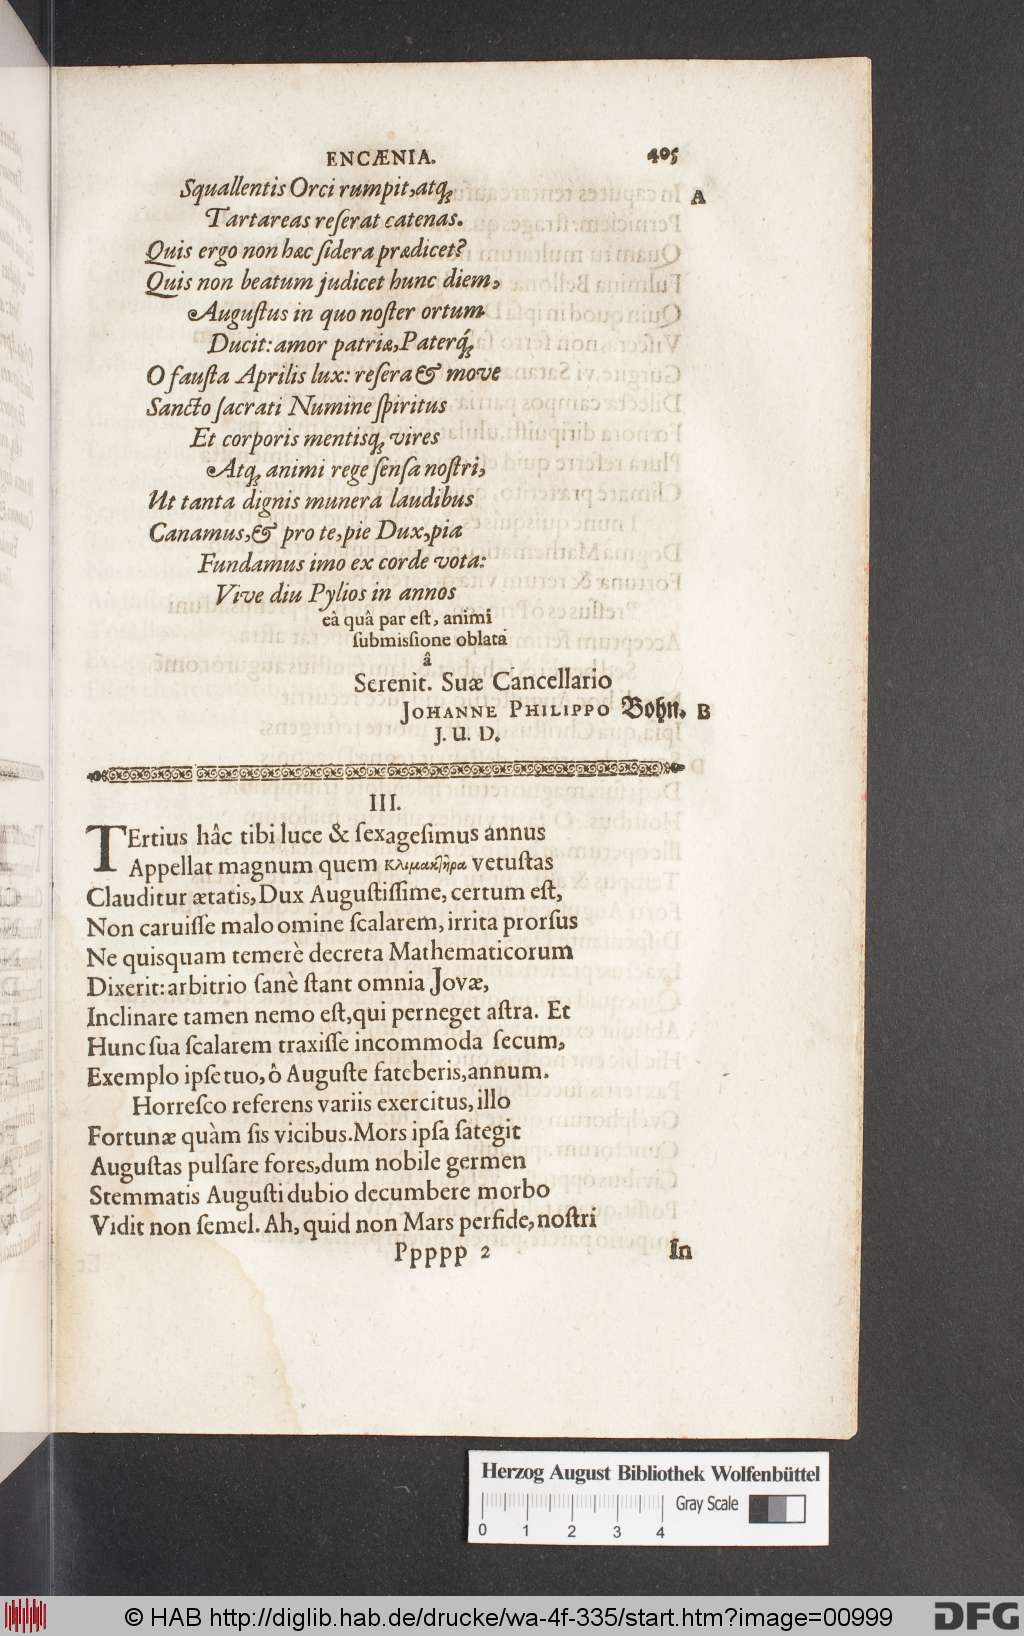 ENCÆNIA. 405
Squallentis Orci rumpit, atqꝫ A
Tartareas reſerat catenas.
Quis ergo non hæc ſidera prædicet?
Quis non beatum judicet hunc diem,
Auguſtus in quo noſter ortum
Ducit: amor patriæ, Paterq́ꝫ
O fauſta Aprilis lux: reſera & move
Sancto ſacrati Numine ſpiritus
Et corporis mentisqꝫ vires
Atqꝫ animi rege ſenſa noſtri,
Ut tanta dignis munera laudibus
Canamus, & pro te, pie Dux, pia
Fundamus imo ex corde vota:
Vive diu Pylios in annos
eâ quâ par eſt, animi
ſubmiſsione oblata
â
Serenit. Suæ Cancellario
JOHANNE PHILIPPO Bohn. B
J. U. D.
III.
TErtius hâc tibi luce & ſexageſimus annus
Appellat magnum quem κλιμακτῆρα vetuſtas
Clauditur ætatis, Dux Auguſtiſſime, certum eſt,
Non caruiſſe malo omine ſcalarem, irrita prorſus
Ne quisquam temerè decreta Mathematicorum
Dixerit: arbitrio ſanè ſtant omnia Jovæ,
Inclinare tamen nemo eſt, qui perneget aſtra. Et
Hunc ſua ſcalarem traxiſſe incommoda ſecum,
Exemplo ipſe tuo, ô Auguſte fateberis, annum.
Horreſco referens variis exercitus, illo
Fortunæ quàm ſis vicibus. Mors ipſa ſategit
Auguſtas pulſare fores, dum nobile germen
Stemmatis Auguſti dubio decumbere morbo
Vidit non ſemel. Ah, quid non Mars perfide, noſtri
Ppppp 2 In
Herzog August Bibliothek Wolfenbüttel
Gray Scale
0 1 2 3 4
© HAB http://diglib.hab.de/drucke/wa-4f-335/start.htm?image=00999 DFG